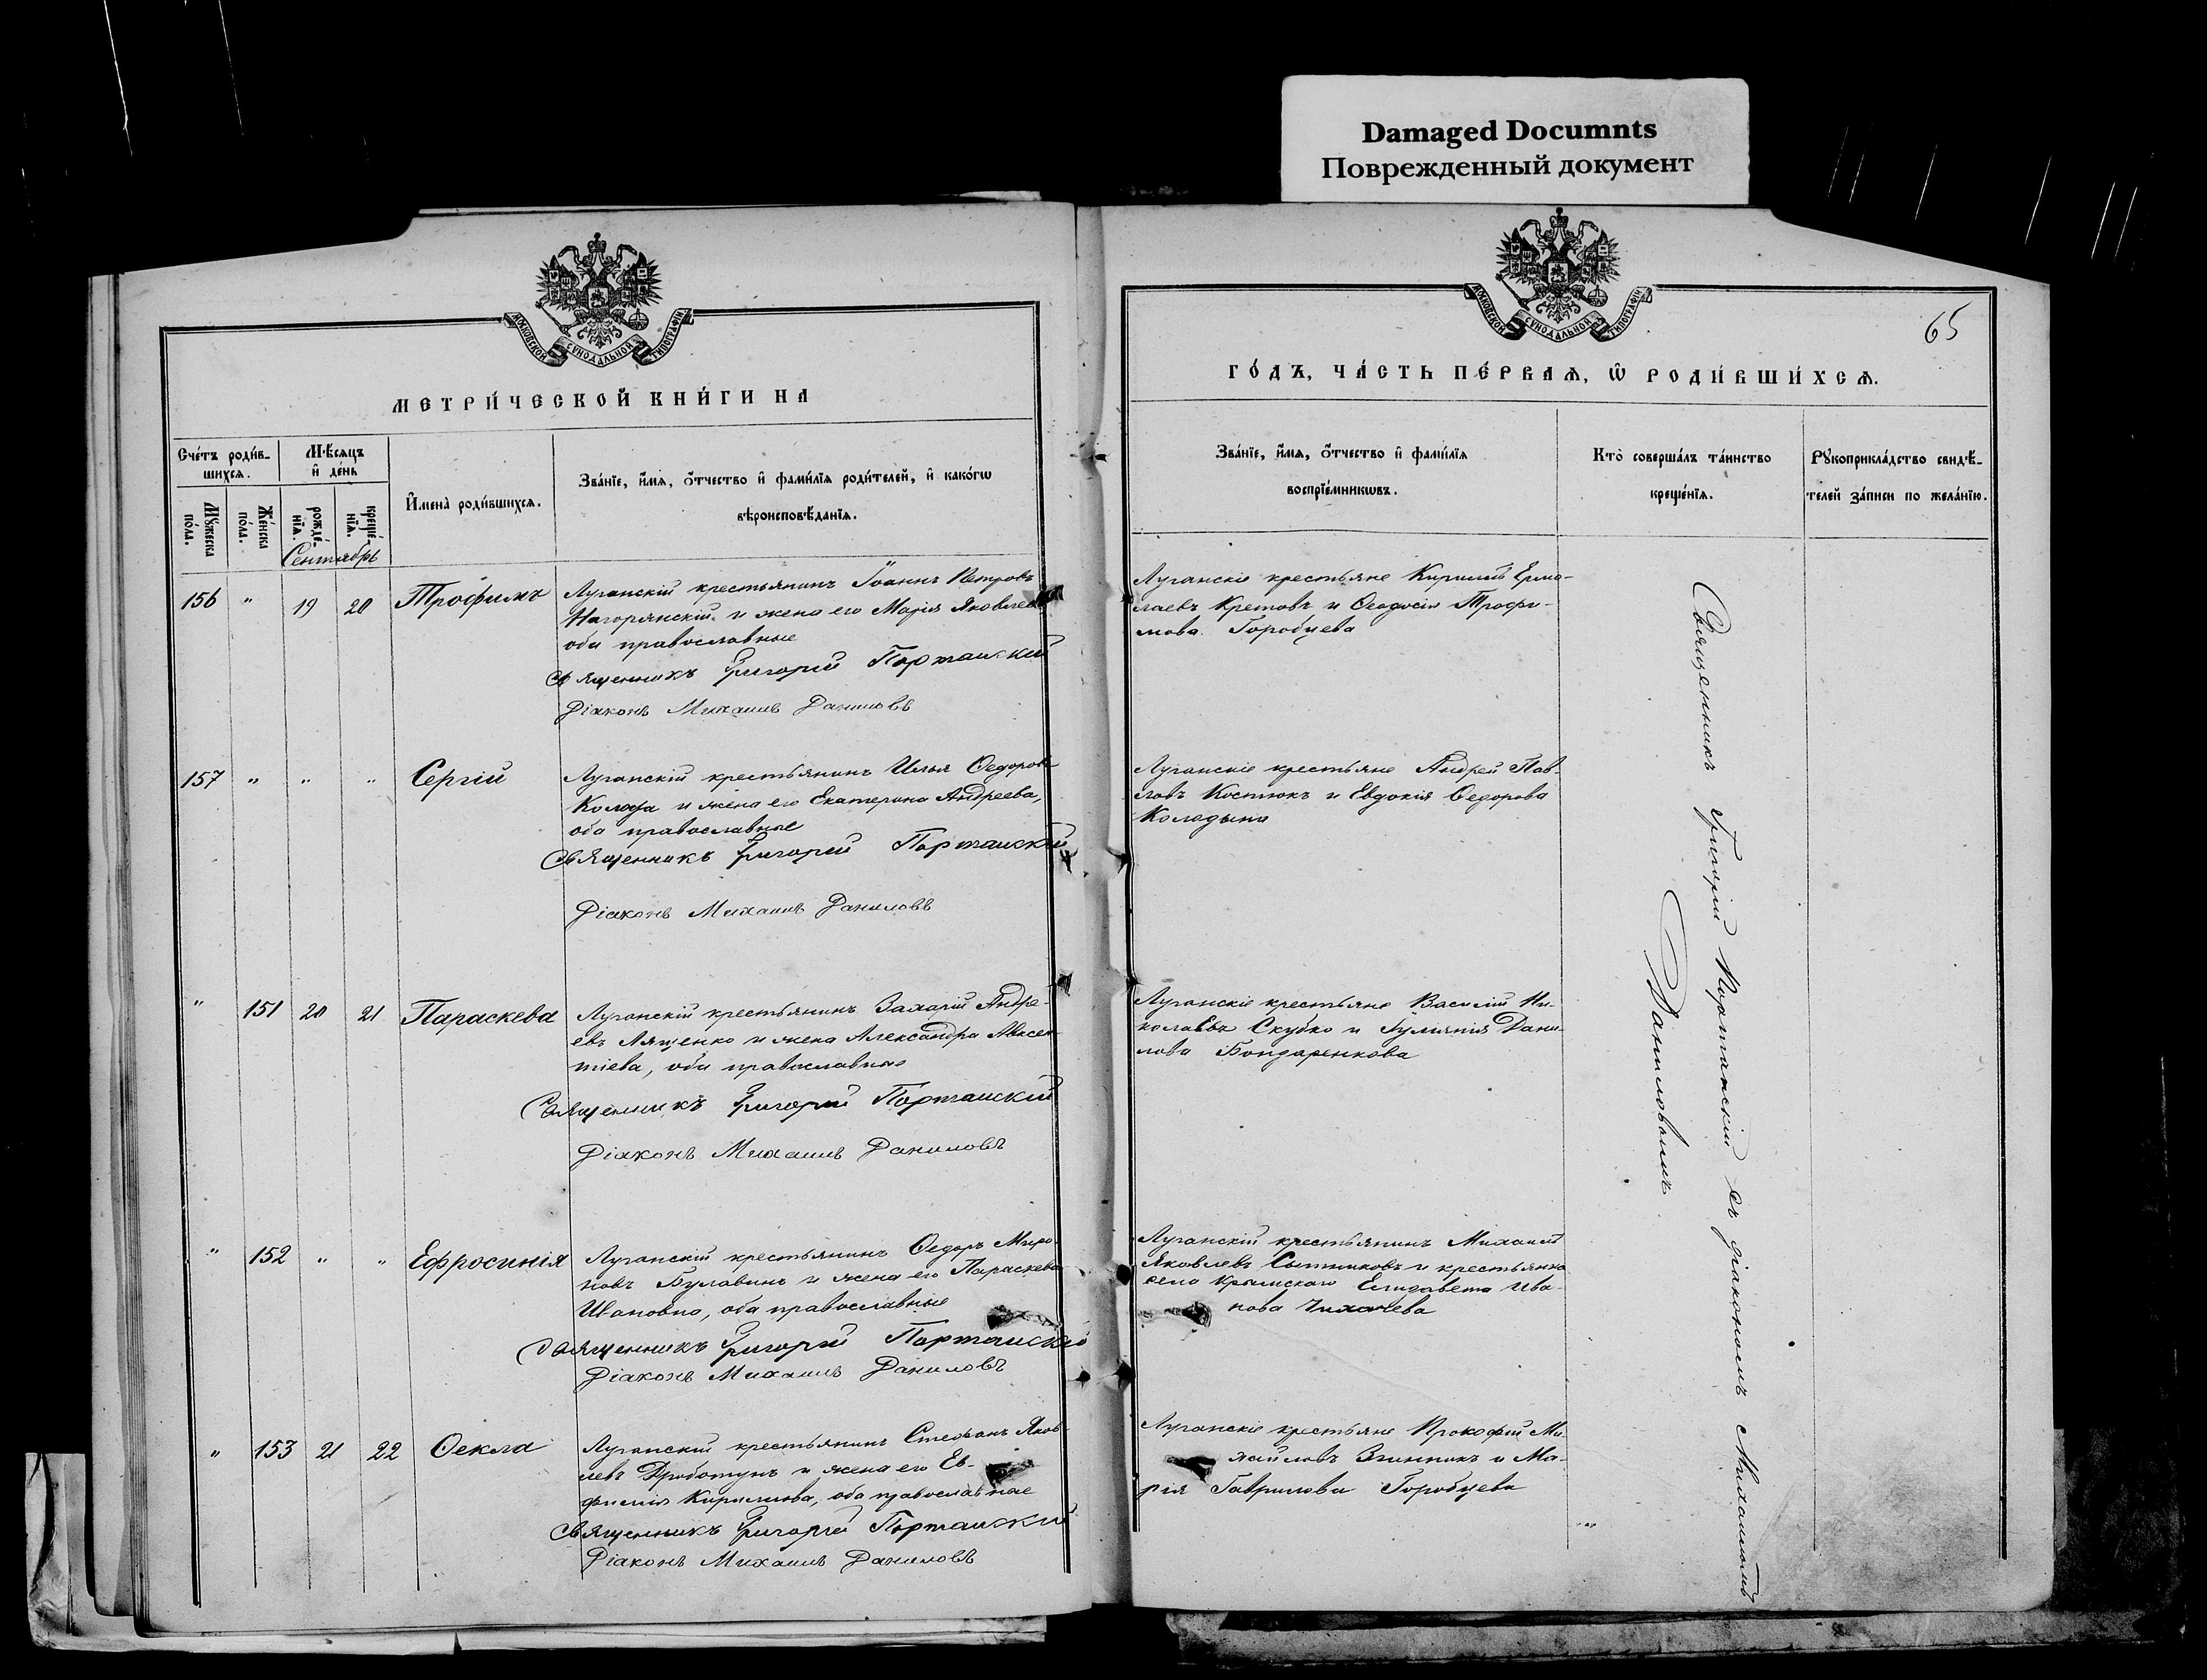 Damaged Documnts
Поврежденный документ
МОСКОВСКОЙ СѴНОДАЛЬНОЙ ТИПОГРАФІИ
МЕТРИ́ЧЕСКОЙ КНИ́ГИ НА
Сче́тъ роди́в-
шихсѧ.
Мѣ́сѧцъ
и҆ де́нь
Мꙋ́жеска
по́ла.
Же́нска
по́ла.
рожде́-
нїѧ.
креще́-
нїѧ.
И҆мена̀ роди́вшихсѧ.
Зва́нїе, и҆́мѧ, ѻ҆́тчество и҆ фами́лїѧ роди́телей, и҆ како́гѡ
вѣроисповѣ́данїѧ.
Сентябрь
156 " 19 20 Трофимъ
Луганскій крестьянинъ Іоаннъ Петровъ
Нагорянскій и жена его Марія Яковлева
оба православные
Священникъ Григорій Портанскій
Діаконъ Михаилъ Даниловъ
157 " " " Сергій
Луганскій крестьянинъ Илья Ѳедоровъ
Коляда и жена его Екатерина Андреева,
оба православные
Священникъ Григорій Портанскій
Діаконъ Михаилъ Даниловъ
" 151 20 21 Параскева
Луганскій крестьянинъ Захарій Андре-
евъ Лященко и жена Александра Авксен-
тіева, оба православные
Священникъ Григорій Портанскій
Діаконъ Михаилъ Даниловъ
" 152 " " Ефросинія
Луганскій крестьянинъ Ѳедоръ Миро-
новъ Булавинъ и жена его Параскева
Ивановна, оба православные
Священникъ Григорій Портанскій
Діаконъ Михаилъ Даниловъ
" 153 21 22 Ѳекла
Луганскій крестьянинъ Стефанъ Яков-
левъ Дроботунъ и жена его Ев-
фимія Кириллова, оба православные
Священникъ Григорій Портанскій
Діаконъ Михаилъ Даниловъ
МОСКОВСКОЙ СѴНОДАЛЬНОЙ ТИПОГРАФІИ
65
ГО́ДЪ, ЧА́СТЬ ПЕ́РВАѦ, Ѡ҆ РОДИ́ВШИ́ХСѦ.
Зва́нїе, и҆́мѧ, ѻ҆́тчество и҆ фами́лїѧ
воспрїе́мникѡвъ.
Кто̀ соверша́лъ та́инство
креще́нїѧ.
Рꙋкоприкла́дство свидѣ́-
телей за́писи по жела́нїю.
Луганскіе крестьяне Кириллъ Ермо-
лаевъ Кретовъ и Ѳеодосія Трофи-
мова Горобцева
Луганскіе крестьяне Андрей Пав-
ловъ Костюкъ и Евдокія Ѳедорова
Колядына
Луганскіе крестьяне Василій Ни-
колаевъ Скубко и Іулианія Дани-
лова Бондаренкова
Луганскій крестьянинъ Михаилъ
Яковлевъ Сытниковъ и крестьянка
села Крымскаго Елизавета Ива-
нова Чихачева
Луганскіе крестьяне Прокофій Ми-
хайловъ Звинникъ и Ма-
рія Гаврилова Горобцева
Священникъ Григорій Портанскій съ діакономъ Михаиломъ
Даниловымъ